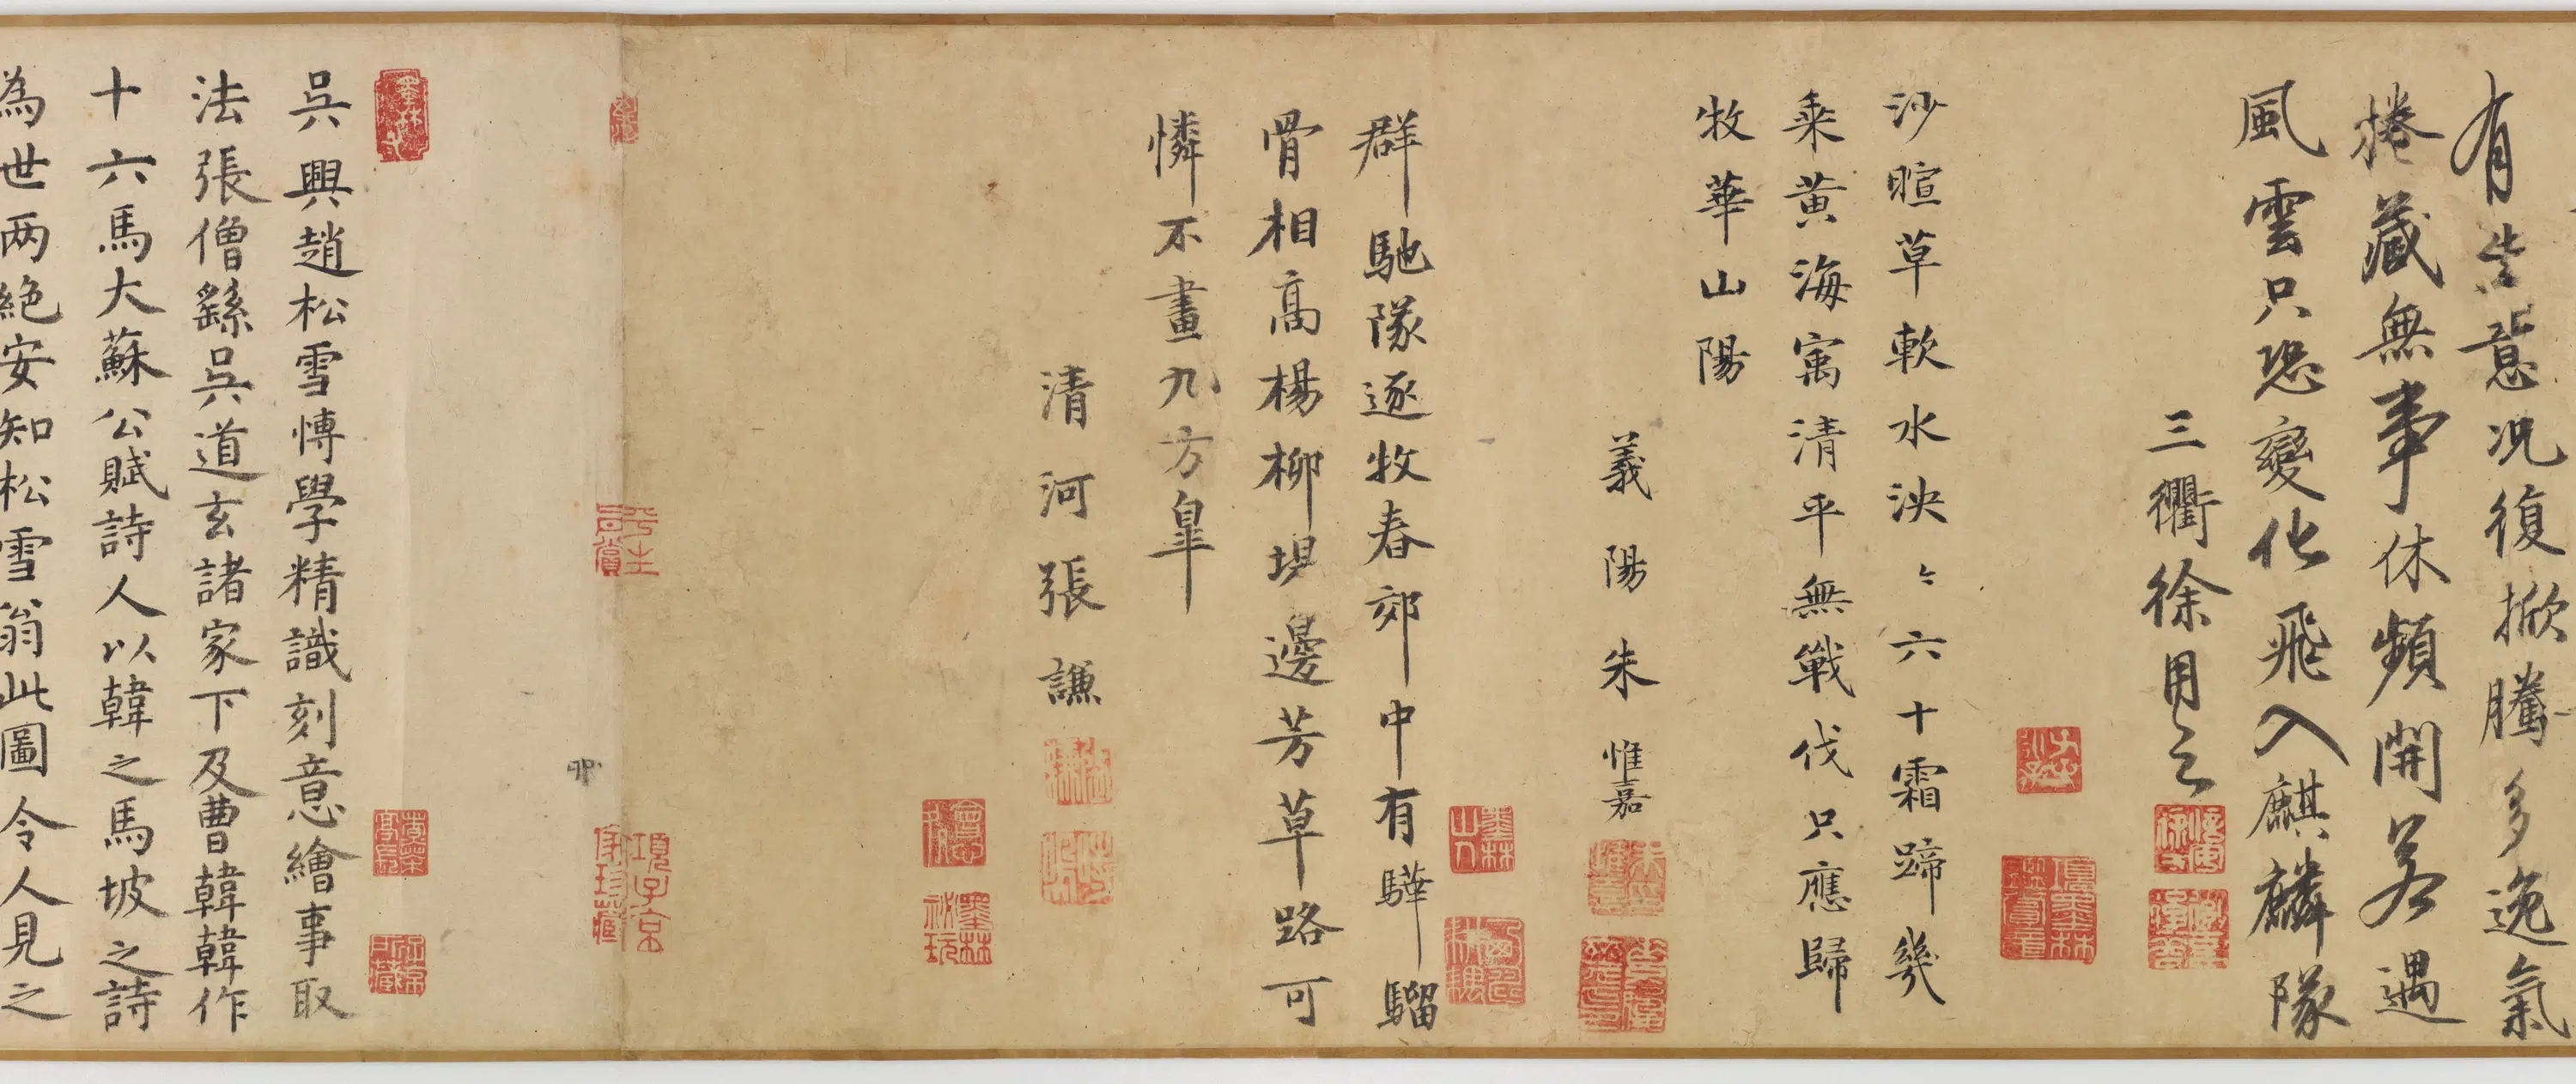 有造意况復掀騰多逸氣
捲藏無事休頻開若遇
風雲只恐變化飛入麒麟隊
三衢徐用之
沙暄草軟水泱〻六十霜蹄幾
乘黄海寓清平無戰伐只應歸
牧華山陽
義陽朱惟嘉
群馳隊逐牧春郊中有驊騮
骨相高楊柳堤邊芳草路可
憐不畫九方皐
清河張謙
吳興趙松雪博學精識刻意繪事取
法張僧繇吳道玄諸家下及曹韓韓作
十六馬大蘇公賦詩人以韓之馬坡之詩
為世两絕安知松雪翁此圖令人見之
墨林山人
項墨林
墨林秘玩
項子京家珍藏
平生真賞